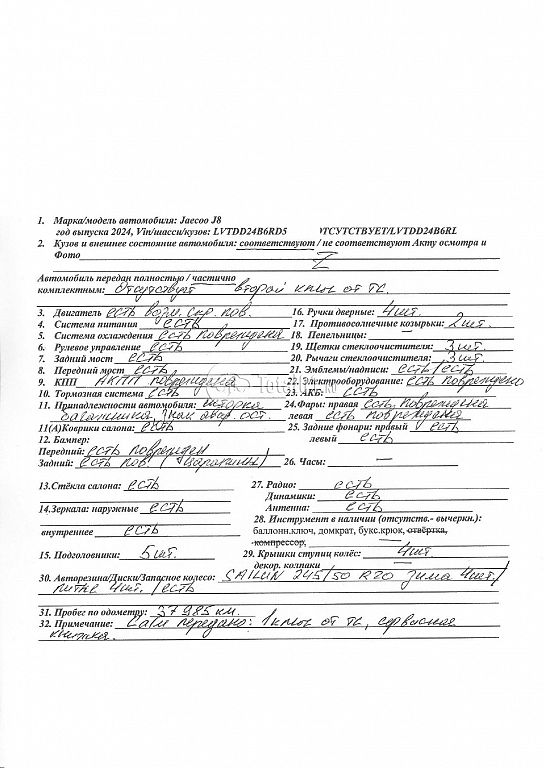 1. Марка/модель автомобиля: Jaecoo J8
год выпуска 2024, Vin/шасси/кузов: LVTDD24B6RD5 ОТСУТСТВУЕТ/LVTDD24B6RL
2. Кузов и внешнее состояние автомобиля: соответствуют / не соответствуют Акту осмотра и
Фото Z
Автомобиль передан полностью / частично
комплектным: Отсутствует второй ключ от ТС.
3. Двигатель есть возм. скр. пов. 16. Ручки дверные: 4 шт.
4. Система питания есть 17. Противосолнечные козырьки: 2 шт.
5. Система охлаждения есть повреждена 18. Пепельницы: —
6. Рулевое управление есть 19. Щетки стеклоочистителя: 3 шт.
7. Задний мост есть 20. Рычаги стеклоочистителя: 3 шт.
8. Передний мост есть 21. Эмблемы/надписи: есть/есть
9. КПП АКПП повреждена 22. Электрооборудование: есть повреждено
10. Тормозная система есть 23. АКБ: есть
11. Принадлежности автомобиля: шторка 24.Фары: правая есть повреждена
багажника, знак авар. ост. левая есть повреждена
11(А)Коврики салона: есть 25. Задние фонари: правый есть
12. Бампер: левый есть
Передний: есть поврежден
Задний: есть пов. (царапины) 26. Часы: —
13.Стёкла салона: есть 27. Радио: есть
Динамики: есть
14.Зеркала: наружные есть Антенна: есть
28. Инструмент в наличии (отсутств.- вычеркн.):
внутреннее есть баллонн.ключ, домкрат, букс.крюк, отвёртка,
компрессор, —
15. Подголовники: 5 шт. 29. Крышки ступиц колёс: 4 шт
декор. колпаки —
30. Авторезина/Диски/Запасное колесо: SAILUN 245/50 R20 зима 4 шт/
литые 4 шт. / есть
31. Пробег по одометру: 37985 км.
32. Примечание: С а/м передано: 1 ключ от ТС, сервисная
книжка.